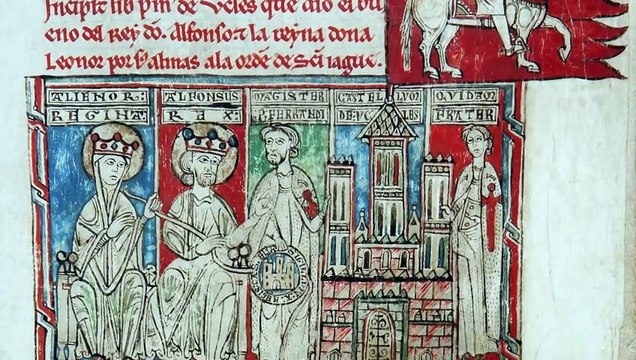 Incipit lib pm de Ucles que dio el bu
eno del rey dō. Alfonso ⁊ la reyna dona
Leonor por s'almas a la ordē de Sct iague.
ALIENOR: ALFONSUS MAGISTER CASTELLUM QUIDAM
REGINA: REX: P. FERRANDI DE UCLES FRATER